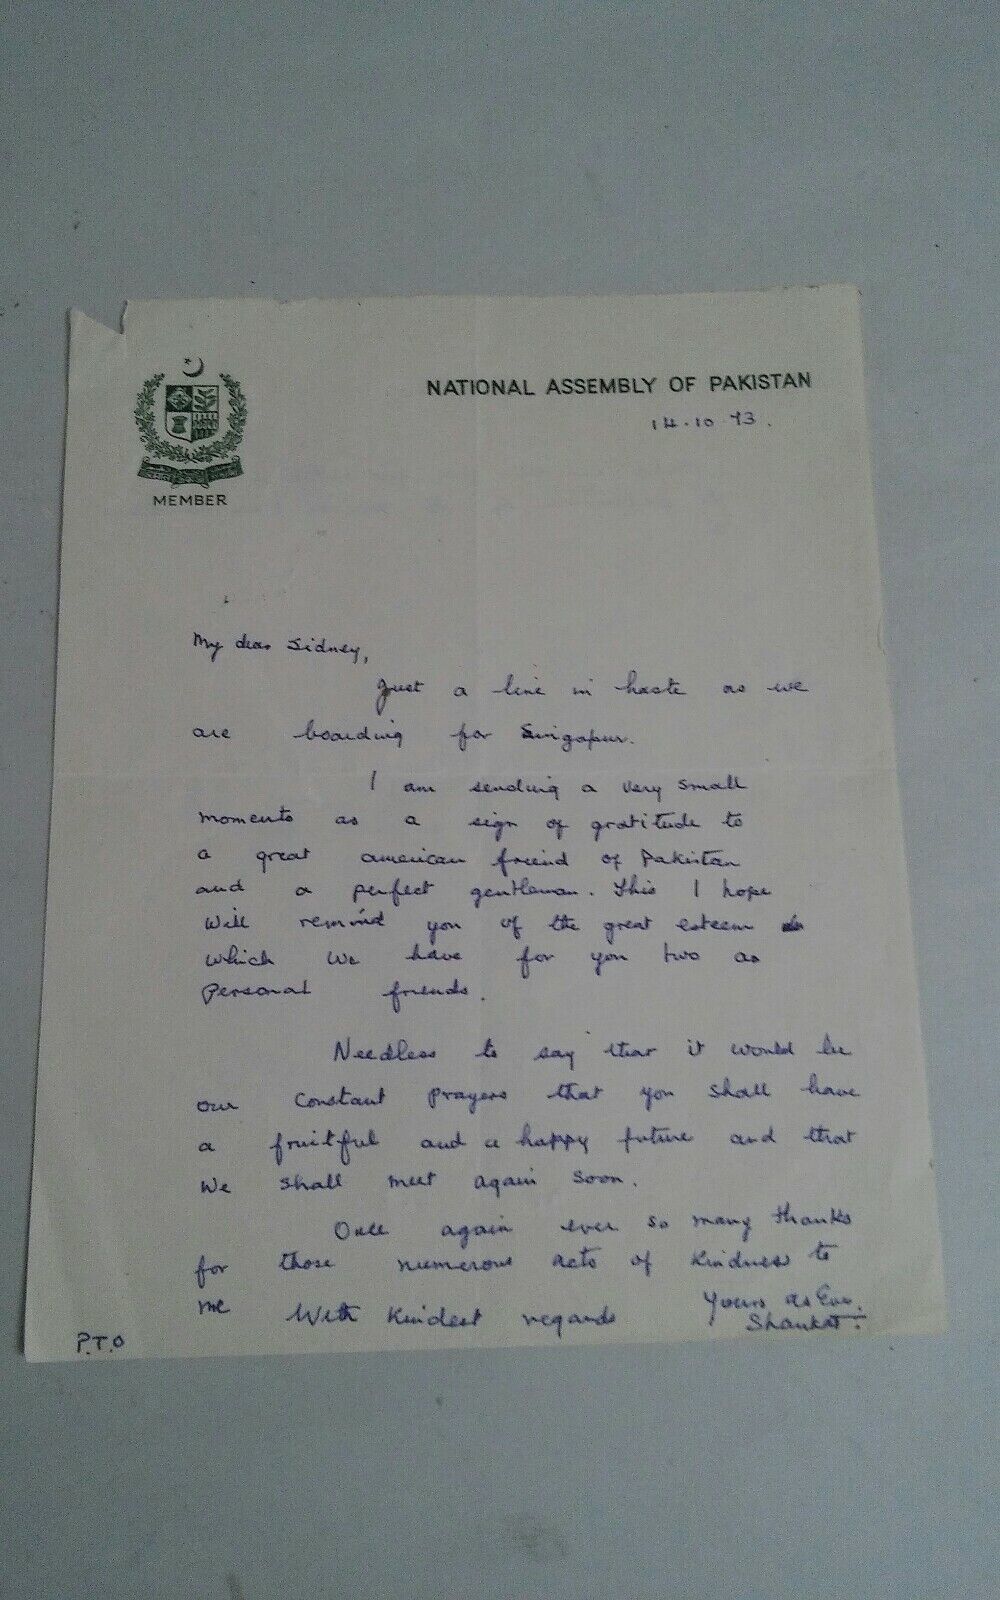 NATIONAL ASSEMBLY OF PAKISTAN
14.10.73.
MEMBER
My dear Sidney,
Just a line in haste as we
are boarding for Singapur.
I am sending a very small
momento as a sign of gratitude to
a great american friend of Pakistan
and a perfect gentleman. This I hope
will remind you of the great esteem
which we have for you two as
personal friends.
Needless to say that it would be
our constant prayers that you shall have
a fruitful and a happy future and that
we shall meet again soon.
Once again ever so many thanks
for those numerous acts of kindness to
me With kindest regards Yours as Ever.
Shaukat.
P.T.O